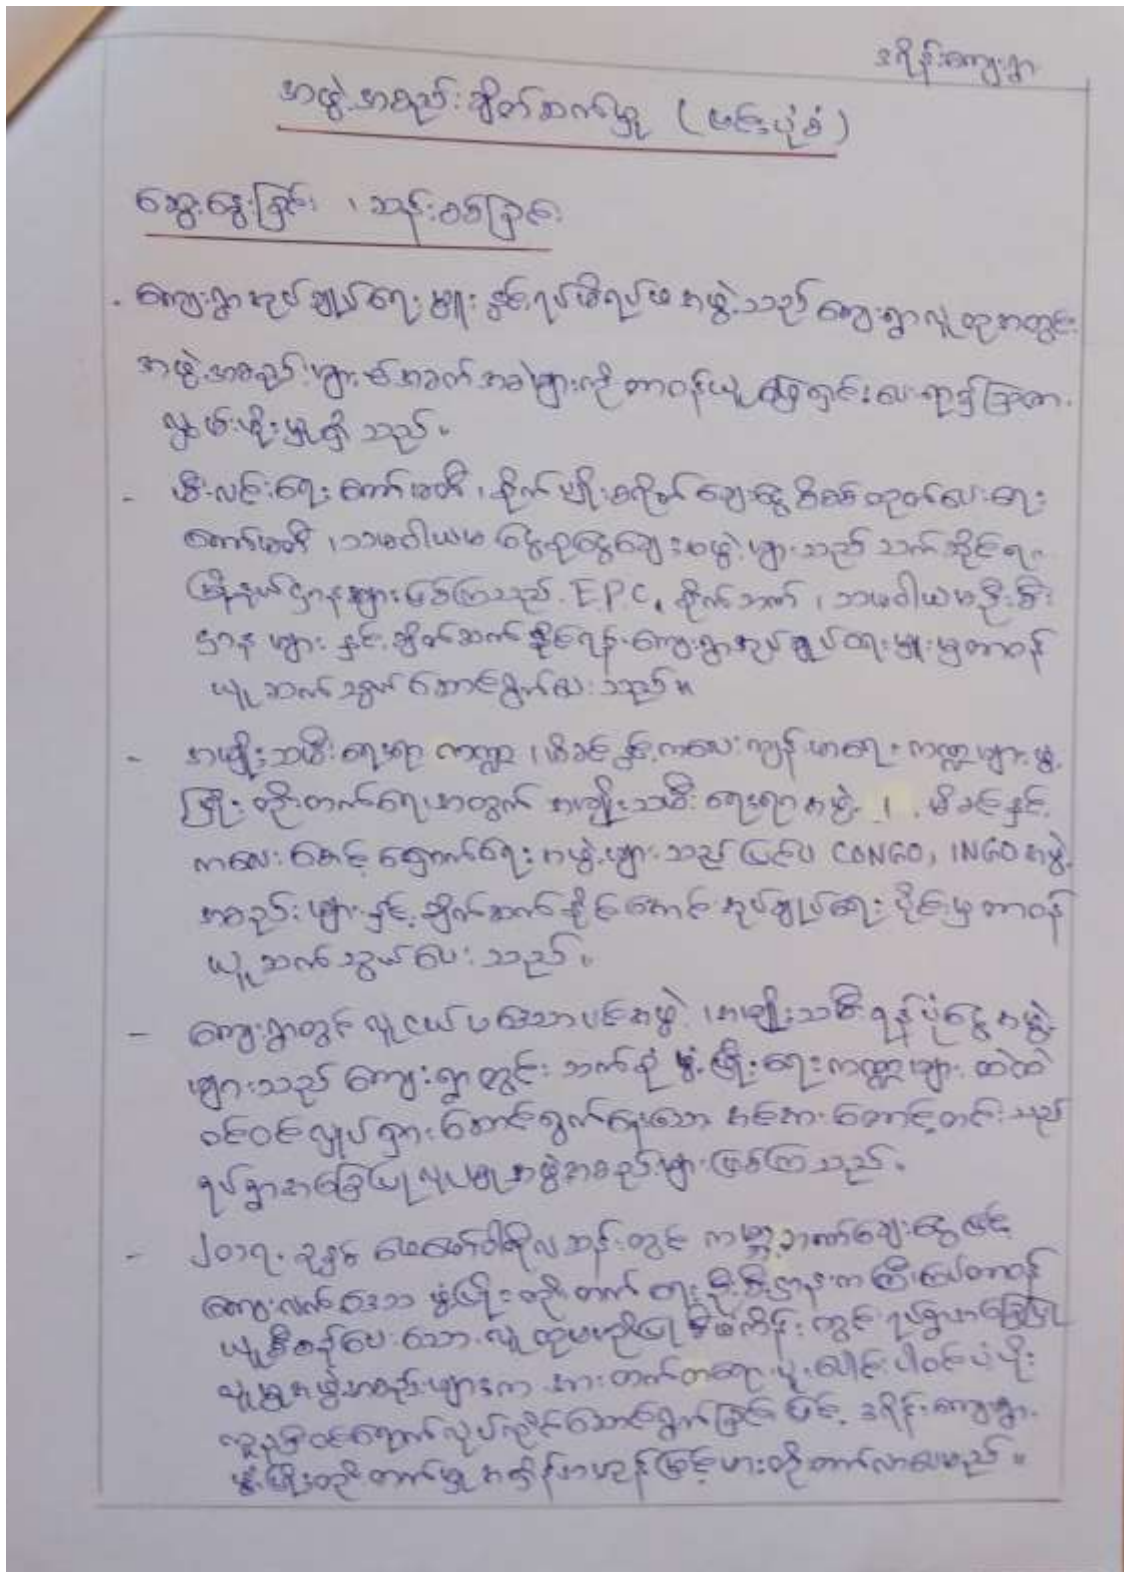 ဒရိန်းကျေးရွာ
အဖွဲ့အစည်းချိတ်ဆက်မှု (ဗင်းပုံစံ)
ဆွေးနွေးခြင်း ၊ သုန်းစစ်ခြင်း
. ကျေးရွာအုပ်ချုပ်ရေးမှူး နှင့် ရပ်မိရပ်ဖအဖွဲ့သည် ကျေးရွာလူထုအတွင်း
အဖွဲ့အစည်းများ၏ အခက်အခဲများကို တာဝန်ယူ ဖြေရှင်းပေးရာ၌
လွှမ်းမိုးမှုရှိသည်။
- မီးလင်းရေးကော်မတီ ၊ စိုက်ပျိုးစရိတ်ချေးငွေစိစစ်ထုတ်ပေးရေး
ကော်မတီ ၊ သမဝါယမ ငွေစုငွေချေးအဖွဲ့များသည် သက်ဆိုင်ရာ
မြို့နယ်ဌာနများဖြစ်ကြသည့် E.P.C, စိုက်ဘဏ် ၊ သမဝါယမဦးစီး
ဌာနများ နှင့် ချိတ်ဆက်နိုင်ရန် ကျေးရွာအုပ်ချုပ်ရေးမှူးမှ တာဝန်
ယူ ဆက်သွယ် ဆောင်ရွက်ပေးသည်။
- အမျိုးသမီးရေးရာ ကဏ္ဍ ၊ မိခင်နှင့် ကလေး ကျန်းမာရေး ကဏ္ဍများ ဖွံ့
ဖြိုးတိုးတက်ရေးအတွက် အမျိုးသမီးရေးရာအဖွဲ့ ၊ မိခင်နှင့်
ကလေး စောင့်ရှောက်ရေး အဖွဲ့များသည် ပြင်ပ CONGO, INGO အဖွဲ့
အစည်းများနှင့် ချိတ်ဆက်နိုင်အောင် အုပ်ချုပ်ရေးပိုင်းမှ တာဝန်
ယူ ဆက်သွယ်ပေးသည်။
- ကျေးရွာတွင် လူငယ် အဖွဲ့ ၊ အမျိုးသမီး ရန်ပုံငွေအဖွဲ့
များသည် ကျေးရွာတွင်း ဘက်စုံ ဖွံ့ဖြိုးရေးကဏ္ဍများ ထဲထဲ
ဝင်ဝင် လှုပ်ရှား ဆောင်ရွက်နေသော အင်အားတောင့်တင်းသည့်
ရပ်ရွာအခြေပြုလူမှုအဖွဲ့အစည်းများ ဖြစ်ကြသည်။
- ၂၀၁၇ ခုနှစ် ဖေဖော်ဝါရီလဆန်းတွင် ကမ္ဘာ့ဘဏ်ချေးငွေဖြင့်
ကျေးလက်ဒေသ ဖွံ့ဖြိုးတိုးတက်ရေးဦးစီးဌာနက ကြီးကြပ်တာဝန်
ယူစီစဉ်ပေးသော လူထုဗဟိုပြုစီမံကိန်းတွင် ရပ်ရွာအခြေပြု
လူမှုအဖွဲ့အစည်းများက အားတက်သရော ပူးပေါင်းပါဝင်ပံ့ပိုး
ကူညီ လုပ်ကိုင်ဆောင်ရွက်ခြင်းဖြင့် ဒရိန်းကျေးရွာ
ဖွံ့ဖြိုးတိုးတက်မှု အရှိန်အဟုန်မြှင့်မားတိုးတက်လာပေမည်။